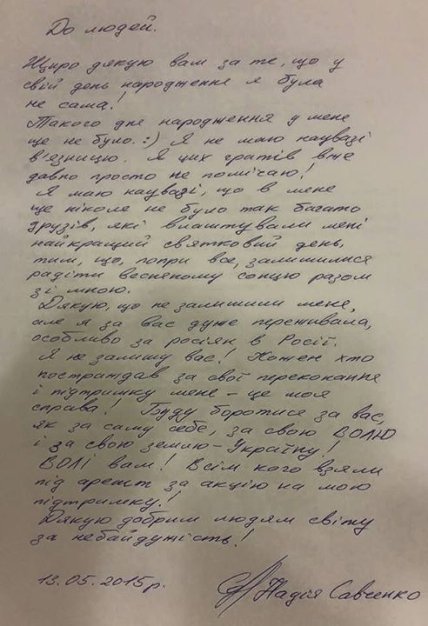 До людей.
Щиро дякую вам за те, що у
свій день народження я була
не сама!
Такого дня народження у мене
ще не було. :) Я не маю наувазі
в'язницю. Я цих гратів вже
давно просто не помічаю!
Я маю наувазі, що в мене
ще ніколе не було так багато
друзів, які влаштували мені
найкращий святковий день,
тим, що, попри все, залишилися
радіти весняному сонцю разом
зі мною.
Дякую, що не залишили мене,
але я за вас дуже переживала,
особливо за росіян в Росії.
Я не залишу вас! Кожен хто
постраждав за свої переконання
і підтримку мене – це моя
справа! Буду боротися за вас,
як за саму себе, за свою ВОЛЮ
і за свою землю – Україну!
ВОЛІ вам! Всім кого взяли
під арешт за акцію на мою
підтримку!
Дякую добрим людям світу
за небайдужість!
13.05.2015р. Надія Савченко